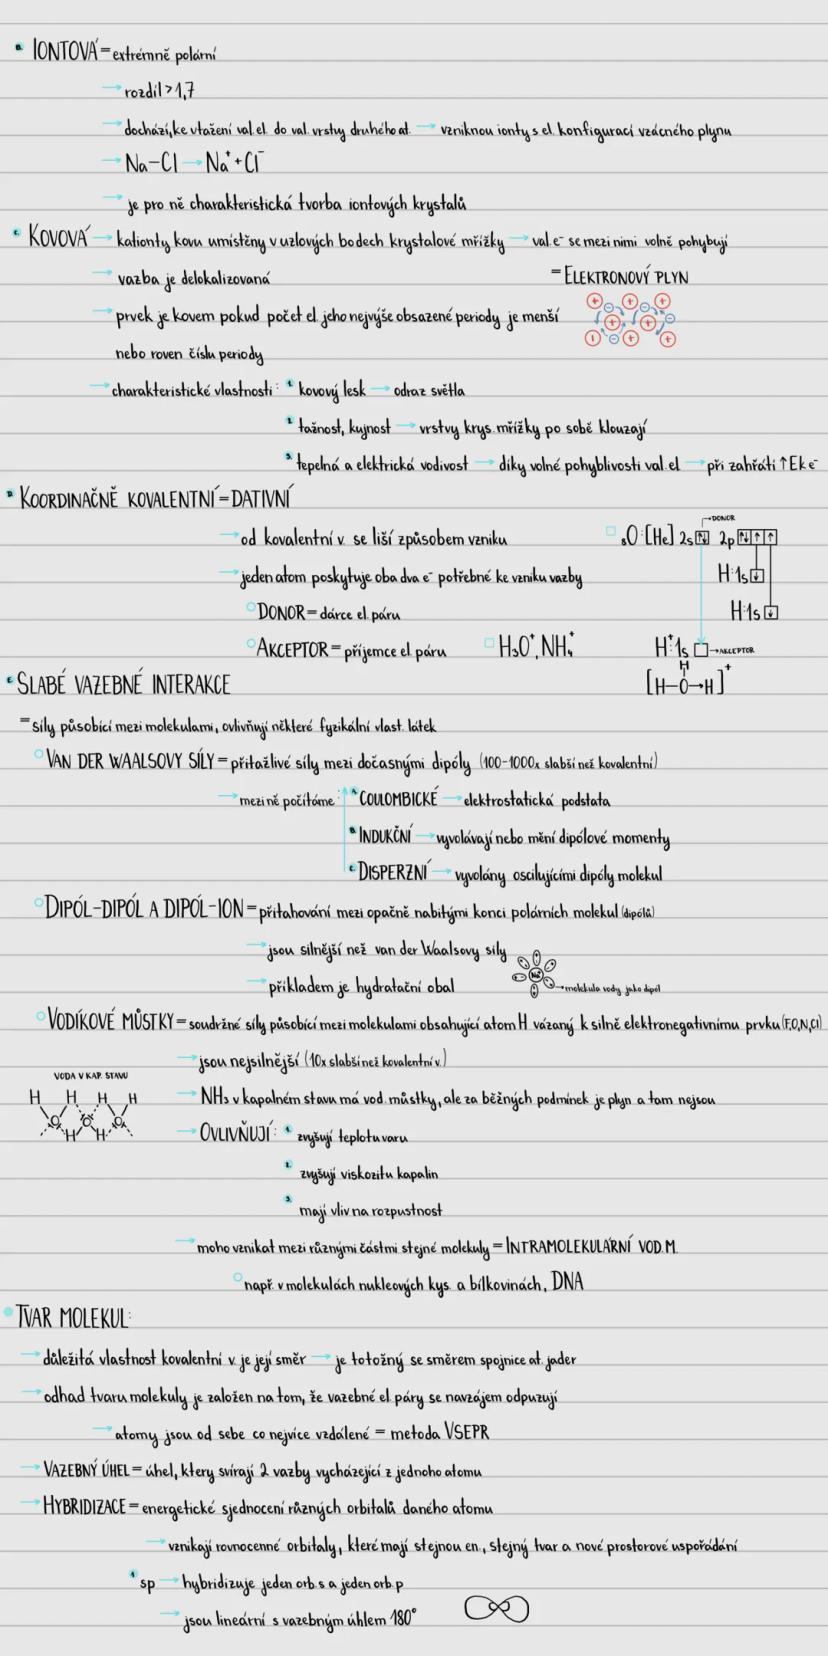 B. IONTOVÁ = extrémně polární
→ rozdíl > 1,7
→ dochází, ke vtažení val. el. do val. vrstvy druhého at. → vzniknou ionty s el. konfigurací vzácného plynu
→ Na-Cl → Na⁺ + Cl⁻
→ je pro ně charakteristická tvorba iontových krystalů
C. KOVOVÁ → kationty kovu umístěny v uzlových bodech krystalové mřížky → val. e⁻ se mezi nimi volně pohybují
→ vazba je delokalizovaná = ELEKTRONOVÝ PLYN
→ prvek je kovem pokud počet el. jeho nejvýše obsazené periody je menší
nebo roven číslu periody
→ charakteristické vlastnosti: 1. kovový lesk → odraz světla
2. tažnost, kujnost → vrstvy krys. mřížky po sobě klouzají
3. tepelná a elektrická vodivost → díky volné pohyblivosti val. el → při zahřátí ↑Ek e⁻
D. KOORDINAČNĚ KOVALENTNÍ = DATIVNÍ
→ DONOR
→ od kovalentní v. se liší způsobem vzniku
₈O: [He] 2s ↑↓ 2p ↑↓ ↑ ↑
→ jeden atom poskytuje oba dva e⁻ potřebné ke vzniku vazby
H: 1s ↓
○ DONOR = dárce el. páru
H: 1s ↓
○ AKCEPTOR = příjemce el. páru □ H₃O⁺, NH₄⁺
H⁺: 1s □ → AKCEPTOR
H
[H-O→H]⁺
E. SLABÉ VAZEBNÉ INTERAKCE
= síly působící mezi molekulami, ovlivňují některé fyzikální vlast. látek
○ VAN DER WAALSOVY SÍLY = přitažlivé síly mezi dočasnými dipóly (100-1000x slabší než kovalentní)
→ mezi ně počítáme: A. COULOMBICKÉ → elektrostatická podstata
B. INDUKČNÍ → vyvolávají nebo mění dipólové momenty
C. DISPERZNÍ → vyvolány oscilujícími dipóly molekul
○ DIPÓL-DIPÓL A DIPÓL-ION = přitahování mezi opačně nabitými konci polárních molekul (dipólů)
→ jsou silnější než van der Waalsovy síly
→ příkladem je hydratační obal
Na⁺
→ molekula vody jako dipól
○ VODÍKOVÉ MŮSTKY = soudržné síly působící mezi molekulami obsahující atom H vázaný k silně elektronegativnímu prvku (F,O,N,Cl)
→ jsou nejsilnější (10x slabší než kovalentní v.)
VODA V KAP. STAVU
H H H H
O O O
H H
→ NH₃ v kapalném stavu má vod. můstky, ale za běžných podmínek je plyn a tam nejsou
→ OVLIVŇUJÍ: 1. zvyšují teplotu varu
2. zvyšují viskozitu kapalin
3. mají vliv na rozpustnost
→ moho vznikat mezi různými částmi stejné molekuly = INTRAMOLEKULÁRNÍ VOD. M.
○ např. v molekulách nukleových kys. a bílkovinách, DNA
TVAR MOLEKUL:
→ důležitá vlastnost kovalentní v. je její směr → je totožný se směrem spojnice at. jader
→ odhad tvaru molekuly je založen na tom, že vazebné el. páry se navzájem odpuzují
→ atomy jsou od sebe co nejvíce vzdálené = metoda VSEPR
→ VAZEBNÝ ÚHEL = úhel, ktery svírají 2 vazby vycházející z jednoho atomu
→ HYBRIDIZACE = energetické sjednocení různých orbitalů daného atomu
→ vznikají rovnocenné orbitaly, které mají stejnou en., stejný tvar a nové prostorové uspořádání
1. sp → hybridizuje jeden orb. s a jeden orb. p
→ jsou lineární s vazebným úhlem 180°